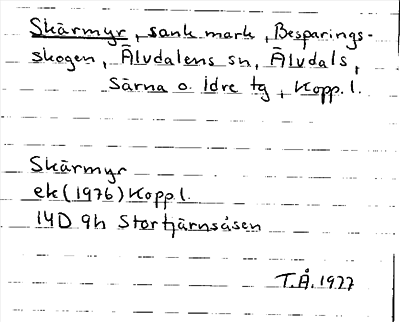 Skärmyr, sank mark, Besparings-
skogen, Älvdalens sn, Älvdals,
Särna o. Idre tg, Kopp. l.
Skärmyr
ek (1976) Kopp l.
14D 9h Stortjärnsåsen
T.Å. 1977